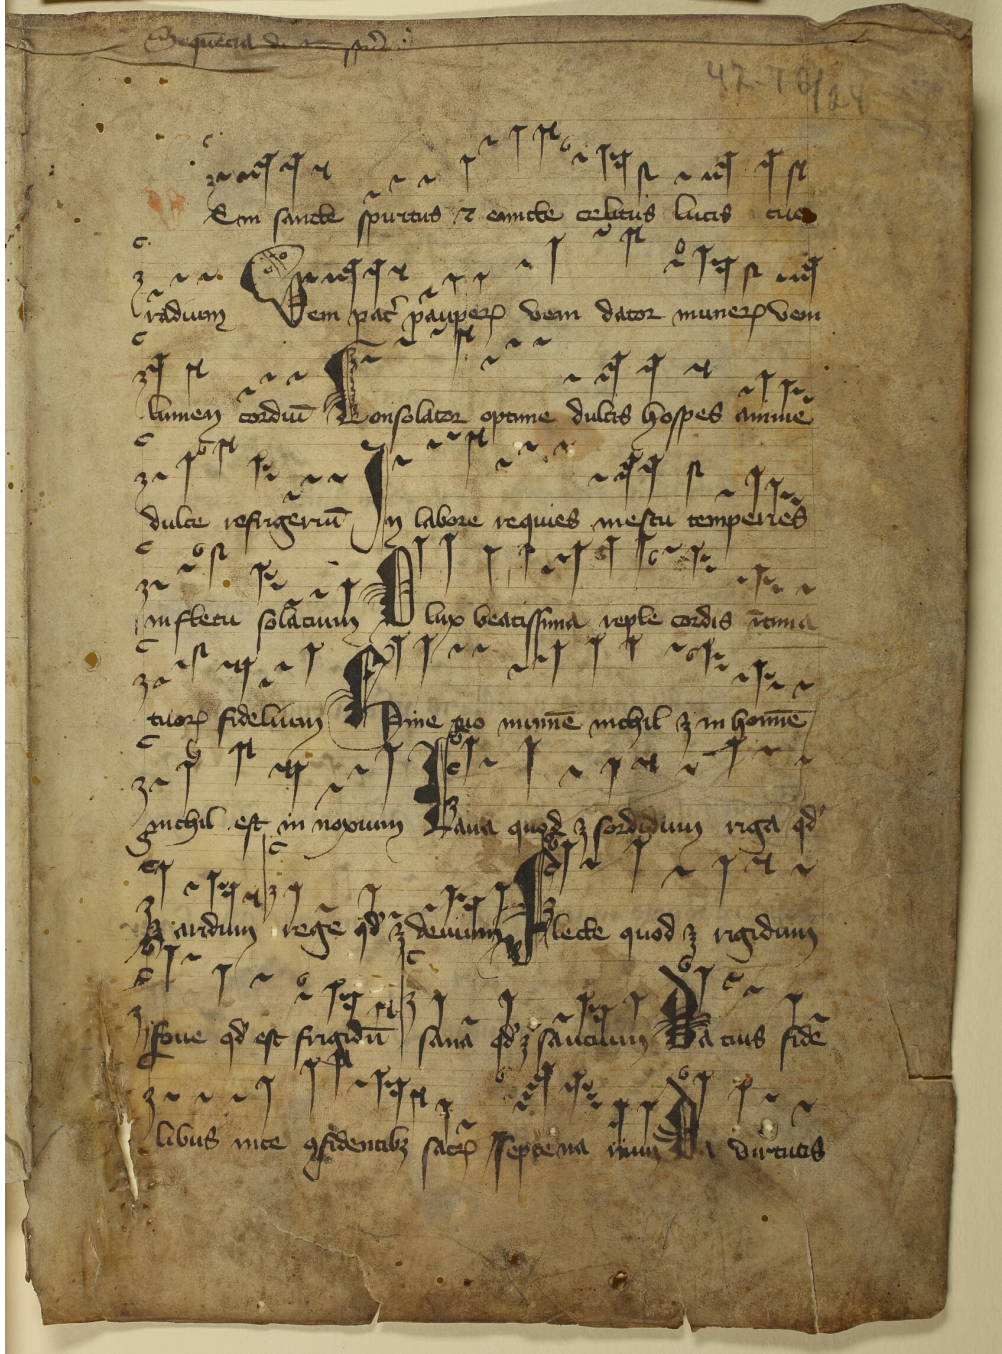 Sequēcia de
42-76/24
Em sancte spiritus z emicte celitus lucis tue
radium Veni pat̄ pauperꝝ veni dator munerꝝ veni
lumen cordiū Consolator optime dulcis hospes anime
dulce refrigeriū In labore requies in estu temperies
in fletu solacium O lux beatissima reple cordis ītima
tuorꝝ fidelium Sine tuo numīe nichil ꝫ in homīe
nichil est in noxium Lava quod ꝫ sordidum riga qd̕
ꝫ aridum rege qd̕ ꝫ devium flecte quod ꝫ rigidum
fove qd̕ est frigidū sana qd̕ ꝫ saucium Da tuis fide
libus in te ꝯfidentibꝫ sacrꝝ septenarium Da virtutis